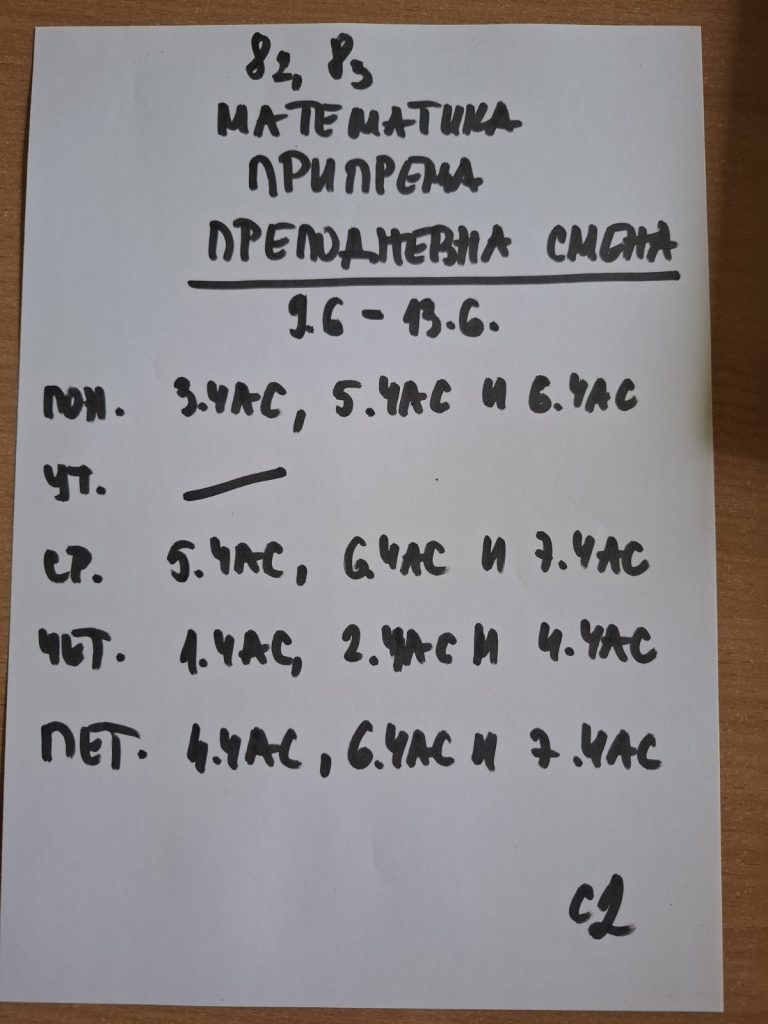 82, 83
МАТЕМАТИКА
ПРИПРЕМА
ПРЕПОДНЕВНА СМЕНА
9.6 - 13.6.
ПОН. 3.ЧАС, 5.ЧАС И 6.ЧАС
УТ. —
СР. 5.ЧАС, 6.ЧАС И 7.ЧАС
ЧЕТ. 1.ЧАС, 2.ЧАС И 4.ЧАС
ПЕТ. 4.ЧАС, 6.ЧАС И 7.ЧАС
С2